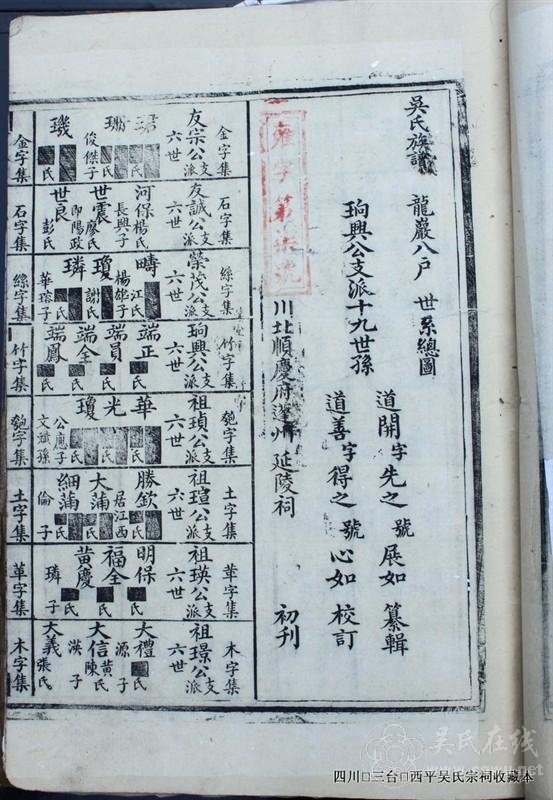 吳氏族譜 龍巖八戶 世系總圖
珦興公支派十九世孫
道開字先之號展如 纂輯
道善字得之號心如 校訂
雍字第柒號
川北順慶府蓬州延陵祠 初刊
金字集
友宗公支派
六世
珊
俊傑子
氏
璣
氏
金字集
石字集
友誠公支派
六世
河保 楊氏
長興子
世震 廖氏
即陽政
世良 彭氏
石字集
絲字集
榮茂公支派
六世
疇 江氏
瓊 謝氏
璘 氏
華琮子
絲字集
竹字集
珦興公支派
六世
端正 氏
端員
端全 氏
端鳳 氏
竹字集
匏字集
祖瑱公支派
六世
華
光
瓊
公應子
文斌孫
匏字集
土字集
祖瑄公支派
六世
勝欽 氏
居江西
大蒲 氏
細蒲 氏
倫子
土字集
革字集
祖瑛公支派
六世
明保 氏
福全 氏
黃慶 氏
璘子
革字集
木字集
祖璟公支派
六世
大禮 氏
源子
大信 陳黃氏
大義 張氏
木字集
吴氏在线
四川□三台□西平吴氏宗祠收藏本